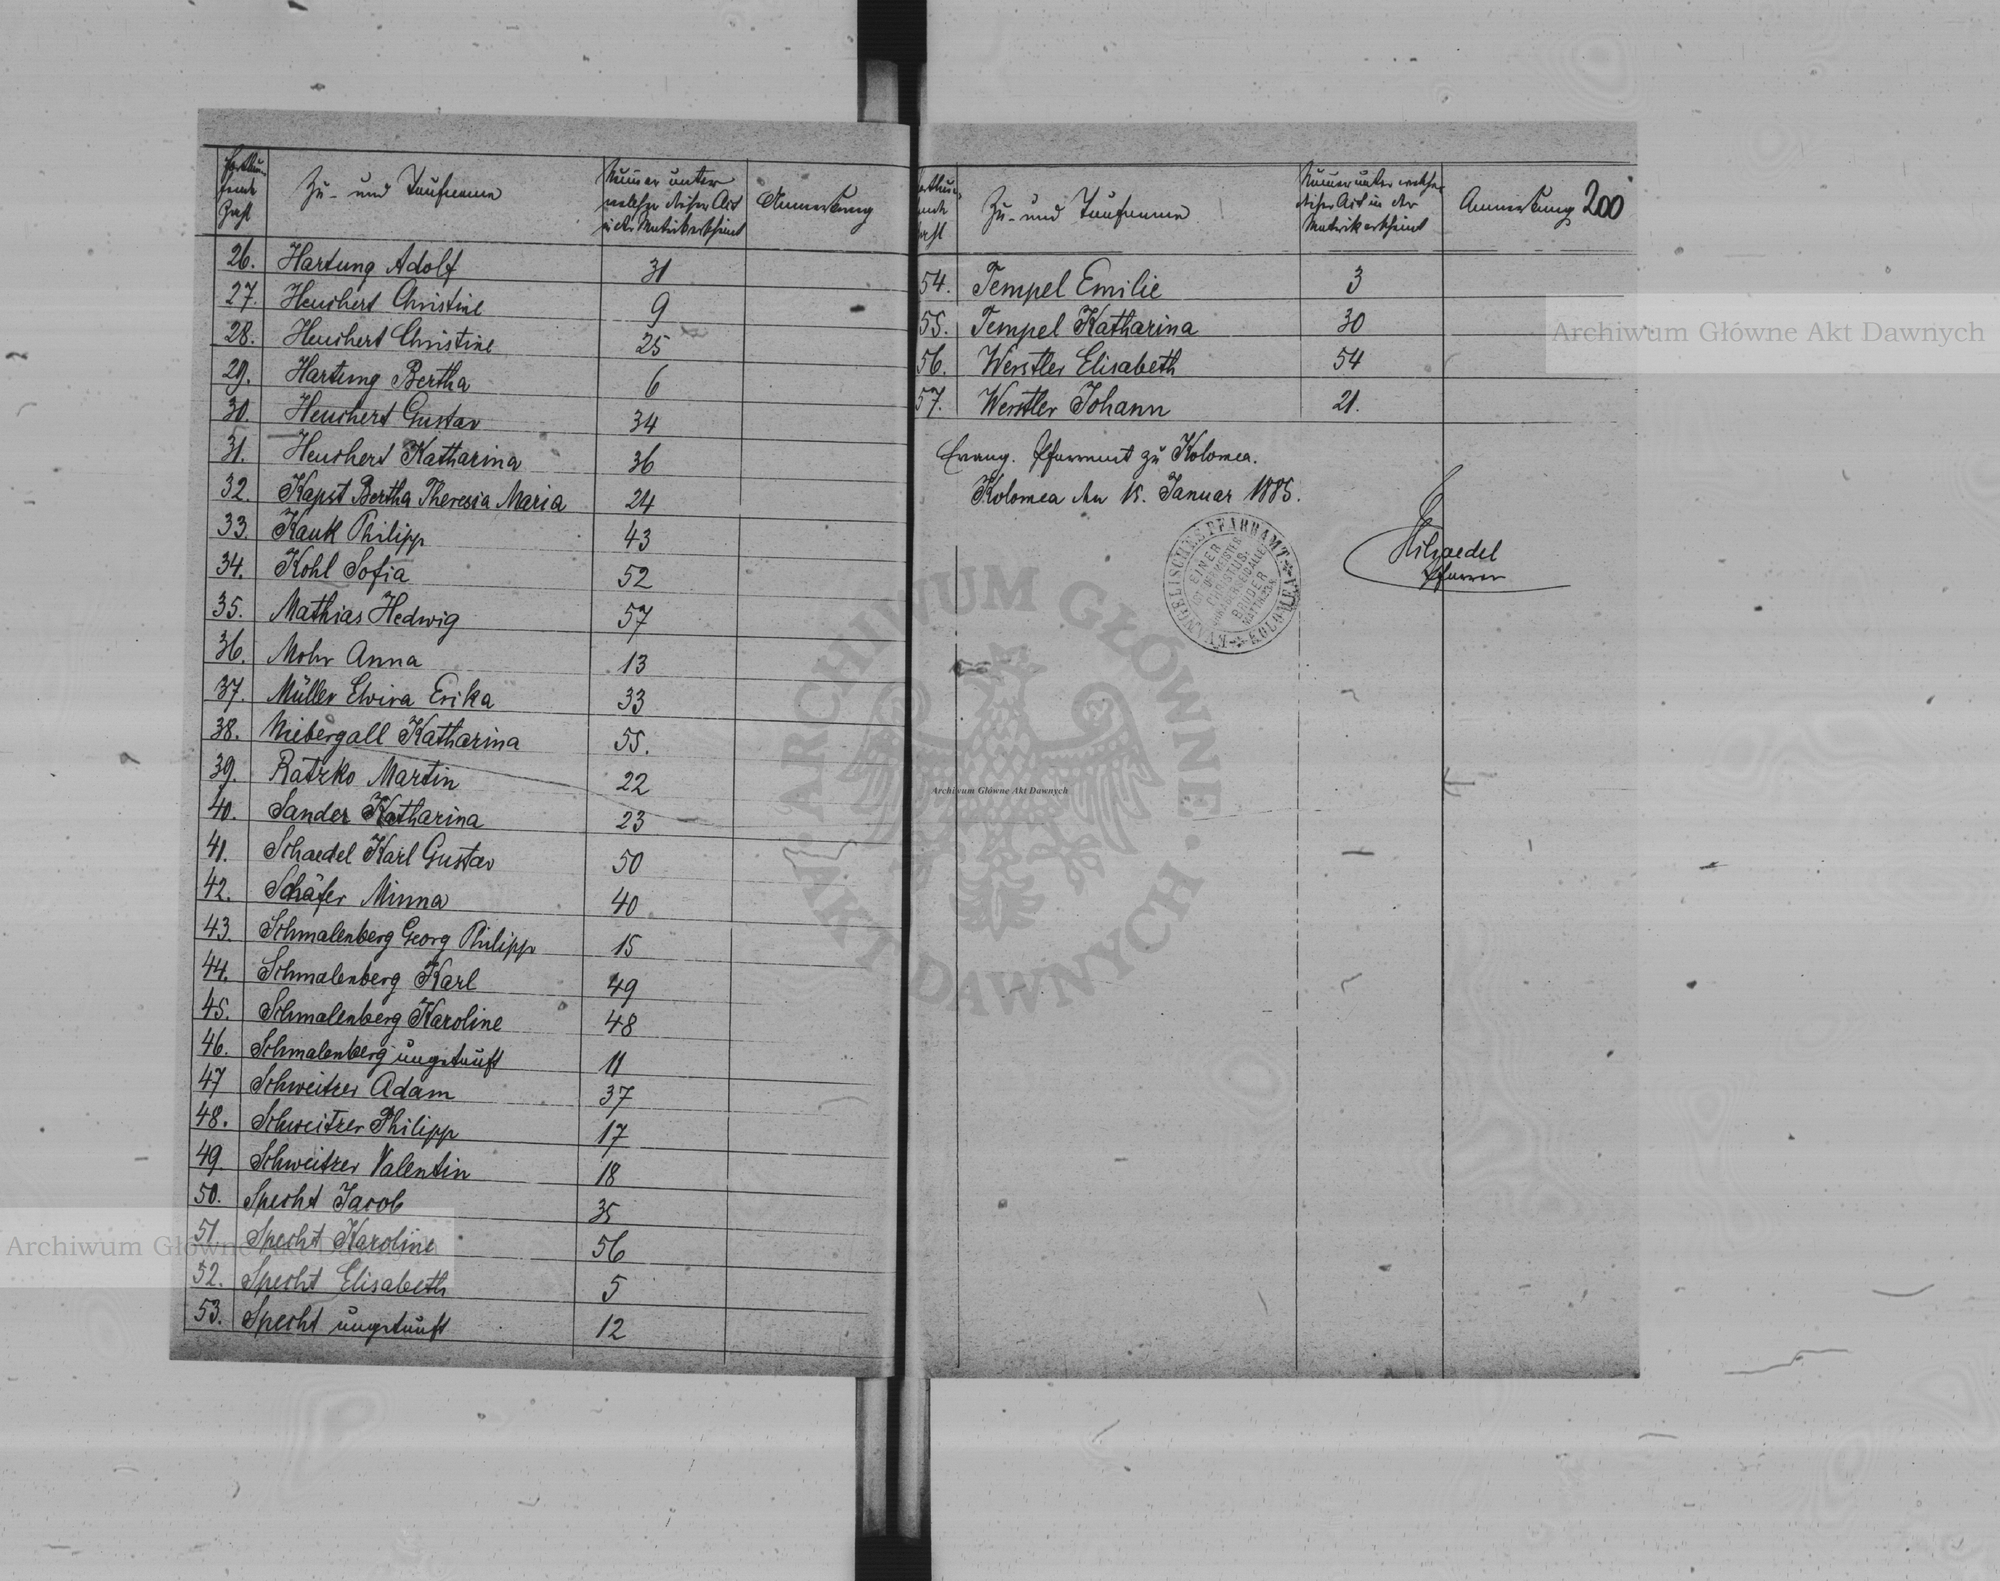 Fortlau-
fende
Zahl
Zu- und Taufname
Numer unter
welcher dieser Act
in der Matrik erscheint
Anmerkung
26. Hartung Adolf 31
27. Heuchert Christine 9
28. Heuchert Christine 25
29. Hartung Bertha 6
30. Heuchert Gustav 34
31. Heuchert Katharina 36
32. Kapst Bertha Theresia Maria 24
33. Kauk Philipp 43
34. Kohl Sofia 52
35. Mathias Hedwig 57
36. Mohr Anna 13
37. Müller Elvira Erika 33
38. Niebergall Katharina 55.
39. Ratzko Martin 22
40. Sander Katharina 23
41. Schaedel Karl Gustav 50
42. Schäfer Minna 40
43. Schmalenberg Georg Philipp 15
44. Schmalenberg Karl 49
45. Schmalenberg Karoline 48
46. Schmalenberg ungetauft 11
47 Schweitzer Adam 37
48. Schweitzer Philipp 17
49. Schweitzer Valentin 18
50. Specht Jacob 35
51 Specht Karoline 56
52. Specht Elisabeth 5
53. Specht ungetauft 12
Zu- und Taufname
Numer unter welcher
dieser Act in der
Matrik erscheint
Anmerkung 200
54. Tempel Emilie 3
55. Tempel Katharina 30
56. Werstler Elisabeth 54
57. Werstler Johann 21.
Evang. Pfarramt zu Kolomea.
Kolomea den 15. Januar 1885.
Schaedel
Pfarrer
EVANGELISCHES PFARRAMT KOLOMEA
EINER
IST EUER MEISTER
CHRISTUS;
IHR ABER SEID ALLE
BRÜDER
Archiwum Główne Akt Dawnych
Archiwum Główne Akt Dawnych
Archiwum Główne Akt Dawnych
ARCHIWUM GŁÓWNE · AKT DAWNYCH ·